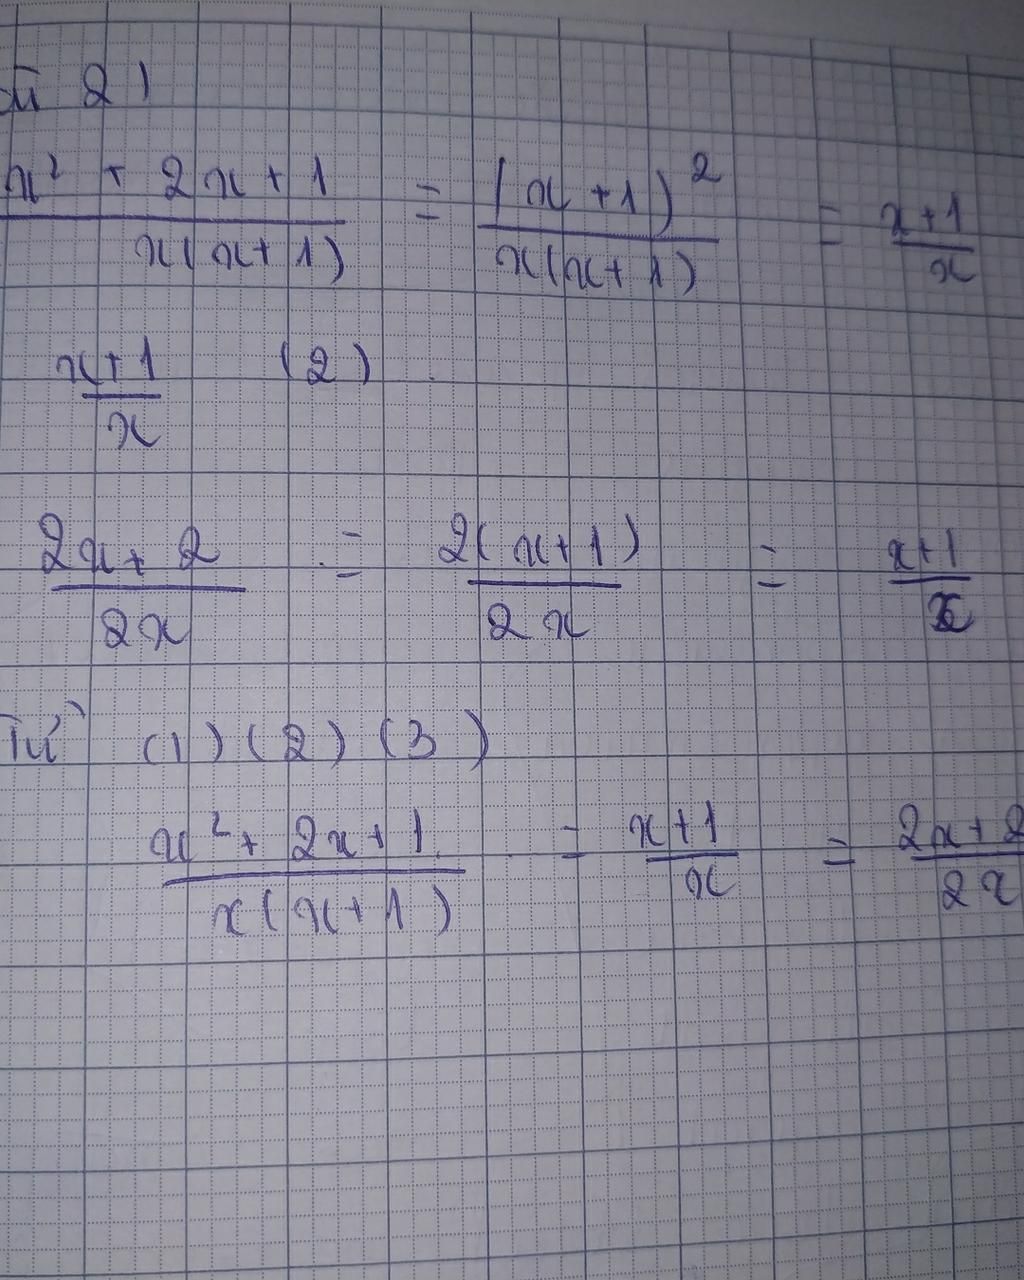 2)
x² + 2x + 1 / x(x + 1) = (x + 1)² / x(x + 1) = x + 1 / x
x + 1 / x (2)
2x + 2 / 2x = 2(x + 1) / 2x = x + 1 / x
Từ (1) (2) (3)
x² + 2x + 1 / x(x + 1) = x + 1 / x = 2x + 2 / 2x